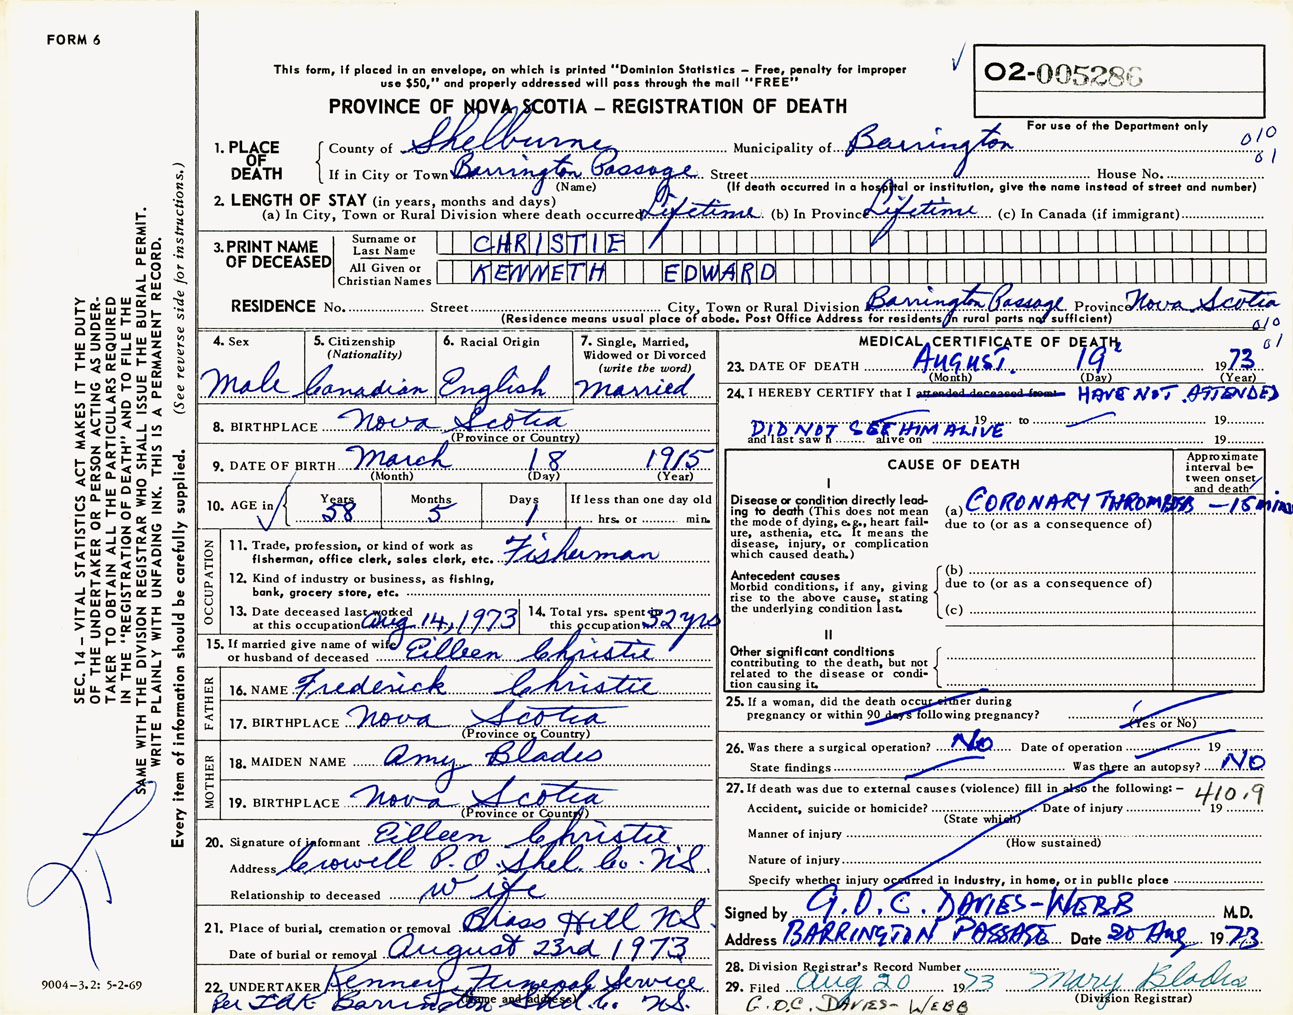 FORM 6
This form, if placed in an envelope, on which is printed "Dominion Statistics – Free, penalty for improper
use $50," and properly addressed will pass through the mail "FREE"
O2-005286
PROVINCE OF NOVA SCOTIA – REGISTRATION OF DEATH
For use of the Department only
010
01
1. PLACE OF DEATH
County of Shelburne Municipality of Barrington
If in City or Town Barrington Passage Street House No.
(Name) (If death occurred in a hospital or institution, give the name instead of street and number)
2. LENGTH OF STAY (in years, months and days)
(a) In City, Town or Rural Division where death occurred Lifetime (b) In Province Lifetime (c) In Canada (if immigrant)
3. PRINT NAME OF DECEASED
Surname or Last Name CHRISTIE
All Given or Christian Names KENNETH EDWARD
RESIDENCE No. Street City, Town or Rural Division Barrington Passage Province Nova Scotia
(Residence means usual place of abode. Post Office Address for residents in rural parts not sufficient)
010
01
4. Sex
Male
5. Citizenship
(Nationality)
Canadian
6. Racial Origin
English
7. Single, Married,
Widowed or Divorced
(write the word)
Married
8. BIRTHPLACE Nova Scotia
(Province or Country)
9. DATE OF BIRTH March 18 1915
(Month) (Day) (Year)
10. AGE in Years 58 Months 5 Days 1 If less than one day old
hrs. or min.
OCCUPATION
11. Trade, profession, or kind of work as
fisherman, office clerk, sales clerk, etc. Fisherman
12. Kind of industry or business, as fishing,
bank, grocery store, etc.
13. Date deceased last worked
at this occupation Aug 14, 1973
14. Total yrs. spent in
this occupation 32 yrs
15. If married give name of wife
or husband of deceased Eilleen Christie
FATHER
16. NAME Frederick Christie
17. BIRTHPLACE Nova Scotia
(Province or Country)
MOTHER
18. MAIDEN NAME Amy Blades
19. BIRTHPLACE Nova Scotia
(Province or Country)
20. Signature of informant Eilleen Christie
Address Crowell P.O. Shel. Co. N.S.
Relationship to deceased Wife
21. Place of burial, cremation or removal Brass Hill N.S.
Date of burial or removal August 23rd 1973
22. UNDERTAKER Kenney Funeral Service
(Name and address)
Barrington Shel. Co. N.S.
MEDICAL CERTIFICATE OF DEATH
23. DATE OF DEATH AUGUST 19 1973
(Month) (Day) (Year)
24. I HEREBY CERTIFY that I attended deceased from: HAVE NOT ATTENDED
19 to 19
DID NOT SEE HIM ALIVE
and last saw h alive on 19
CAUSE OF DEATH
Approximate
interval be-
tween onset
and death
I
Disease or condition directly lead-
ing to death (This does not mean
the mode of dying, e.g., heart fail-
ure, asthenia, etc. It means the
disease, injury, or complication
which caused death.)
(a) CORONARY THROMBOSIS – 15 mins
due to (or as a consequence of)
Antecedent causes
Morbid conditions, if any, giving
rise to the above cause, stating
the underlying condition last.
(b)
due to (or as a consequence of)
(c)
II
Other significant conditions
contributing to the death, but not
related to the disease or condi-
tion causing it.
25. If a woman, did the death occur either during
pregnancy or within 90 days following pregnancy?
(Yes or No)
26. Was there a surgical operation? No Date of operation 19
State findings Was there an autopsy? NO
27. If death was due to external causes (violence) fill in also the following: – 410.9
Accident, suicide or homicide? Date of injury 19
(State which)
Manner of injury
(How sustained)
Nature of injury
Specify whether injury occurred in Industry, in home, or in public place
Signed by G.O.C. DAVIES-WEBB M.D.
Address BARRINGTON PASSAGE Date 20 Aug 1973
28. Division Registrar's Record Number
29. Filed Aug 20 1973 Mary Blades
(Division Registrar)
G.O.C. DAVIES-WEBB
SEC. 14 – VITAL STATISTICS ACT MAKES IT THE DUTY
OF THE UNDERTAKER OR PERSON ACTING AS UNDER-
TAKER TO OBTAIN ALL THE PARTICULARS REQUIRED
IN THE "REGISTRATION OF DEATH" AND TO FILE THE
SAME WITH THE DIVISION REGISTRAR WHO SHALL ISSUE THE BURIAL PERMIT.
WRITE PLAINLY WITH UNFADING INK. THIS IS A PERMANENT RECORD.
Every item of information should be carefully supplied. (See reverse side for instructions.)
9004-3.2: 5-2-69